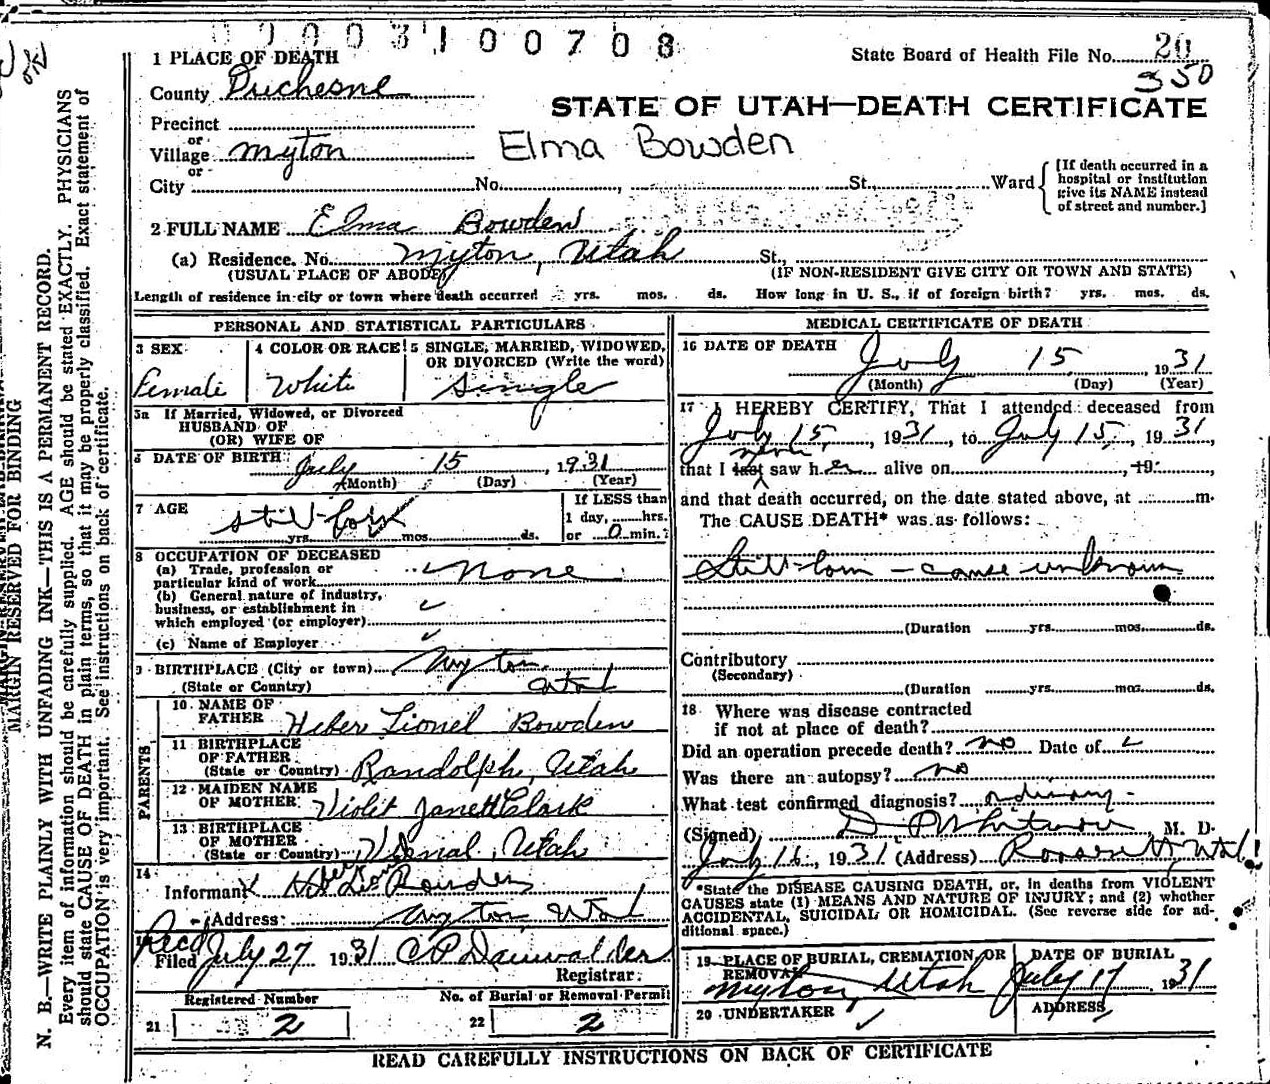 0003100708
State Board of Health File No. 20
350
1 PLACE OF DEATH
County Duchesne
STATE OF UTAH—DEATH CERTIFICATE
Precinct
or
Village Myton
Elma Bowden
or
City No. , St., Ward
[If death occurred in a hospital or institution give its NAME instead of street and number.]
2 FULL NAME Elma Bowden
(a) Residence. No. Myton, Utah St.,
(USUAL PLACE OF ABODE) (IF NON-RESIDENT GIVE CITY OR TOWN AND STATE)
Length of residence in city or town where death occurred yrs. mos. ds. How long in U. S., if of foreign birth? yrs. mos. ds.
PERSONAL AND STATISTICAL PARTICULARS
3 SEX
Female
4 COLOR OR RACE
White
5 SINGLE, MARRIED, WIDOWED,
OR DIVORCED (Write the word)
Single
5a If Married, Widowed, or Divorced
HUSBAND OF
(OR) WIFE OF
6 DATE OF BIRTH July 15, 1931
(Month) (Day) (Year)
7 AGE still-born
yrs. mos. ds.
If LESS than
1 day, hrs.
or 0 min.?
8 OCCUPATION OF DECEASED
(a) Trade, profession or
particular kind of work none
(b) General nature of industry,
business, or establishment in
which employed (or employer)
(c) Name of Employer
9 BIRTHPLACE (City or town) Myton
(State or Country) Utah
PARENTS
10 NAME OF
FATHER Heber Lionel Bowden
11 BIRTHPLACE
OF FATHER
(State or Country) Randolph, Utah
12 MAIDEN NAME
OF MOTHER Violet Janett Clark
13 BIRTHPLACE
OF MOTHER
(State or Country) Vernal, Utah
14
Informant Bowden
Address: Myton Utah
Rec'd
Filed July 27 1931
Registrar.
Registered Number
21 2
No. of Burial or Removal Permit
22 2
MEDICAL CERTIFICATE OF DEATH
16 DATE OF DEATH July 15, 1931
(Month) (Day) (Year)
17 I HEREBY CERTIFY, That I attended deceased from
July 15, 1931, to July 15, 1931,
never
that I last saw her alive on , 19
and that death occurred, on the date stated above, at m.
The CAUSE DEATH* was as follows:
Still-born - cause unknown
(Duration yrs. mos. ds.
Contributory
(Secondary)
(Duration yrs. mos. ds.
18 Where was disease contracted
if not at place of death?
Did an operation precede death? no Date of
Was there an autopsy? no
What test confirmed diagnosis? ordinary
(Signed) D P Whitmore M. D.
July 16, 1931 (Address) Roosevelt, Utah
*State the DISEASE CAUSING DEATH, or, in deaths from VIOLENT
CAUSES state (1) MEANS AND NATURE OF INJURY; and (2) whether
ACCIDENTAL, SUICIDAL OR HOMICIDAL. (See reverse side for ad-
ditional space.)
19 PLACE OF BURIAL, CREMATION, OR
REMOVAL
Myton, Utah
DATE OF BURIAL
July 17 1931
20 UNDERTAKER
ADDRESS
READ CAREFULLY INSTRUCTIONS ON BACK OF CERTIFICATE
MARGIN RESERVED FOR BINDING
N. B.—WRITE PLAINLY WITH UNFADING INK—THIS IS A PERMANENT RECORD.
Every item of information should be carefully supplied. AGE should be stated EXACTLY. PHYSICIANS
should state CAUSE OF DEATH in plain terms, so that it may be properly classified. Exact statement of
OCCUPATION is very important. See instructions on back of certificate.